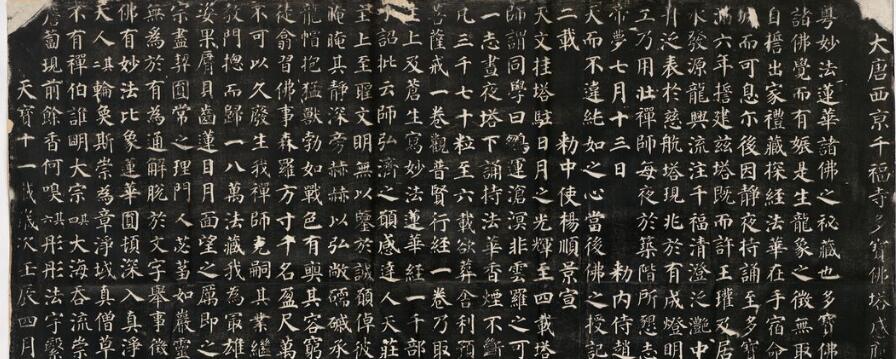 大唐西京千福寺多寶佛塔感
粵妙法蓮華諸佛之秘藏也多寶佛
諸佛覺而有娠是生龍象之徵無取
自誓出家禮藏探經法華在手宿命
城而可息尒後因靜夜持誦至多寶
滿六年誓建茲塔既而許王瓘及居
水發源龍興流注千福清澄泛灩中
引泛表於慈航塔現兆於有成燈明
工乃用壯禪師每夜於築階所懇志
帝夢七月十三日 勑內侍趙
天而不違純如之心當後佛之授記
二載 勑中使楊順景宣
天文挂塔駐日月之光輝至四載塔
師謂同學曰鵬運滄溟非雲羅之可
一志晝夜塔下誦持法華香煙不斷
凡三千七十粒至六載欲葬舍利預
菩薩戒一卷觀普賢行經一卷乃取
主上及蒼生寫妙法蓮華經一千部
手詔批云師弘濟之願感達人天莊
主上至聖文明無以鑒於誠願倬彼
晻晻其靜深旁赫赫以弘敞礝磩承
龍帽抱猛獸勃如戰色有奭其容窮
徒僉習佛事森羅方寸千名盈尺萬
不可以久廢生我禪師克嗣其業繼
教門摠而歸一八萬法藏我為最雄
姿果脣貝齒蓮目月面望之厲即之
宗盡契圓常之理門人苾芻如巖靈
無為於有為通解脫於文字舉事徵
佛有妙法比象蓮華圓頓深入真淨
大人其二輪奐斯崇為章淨域真僧草
不有禪伯誰明大宗其四大海吞流崇
薝蔔現前餘香何嗅其六彤彤法宇繫
天寶十一載歲次壬辰四月